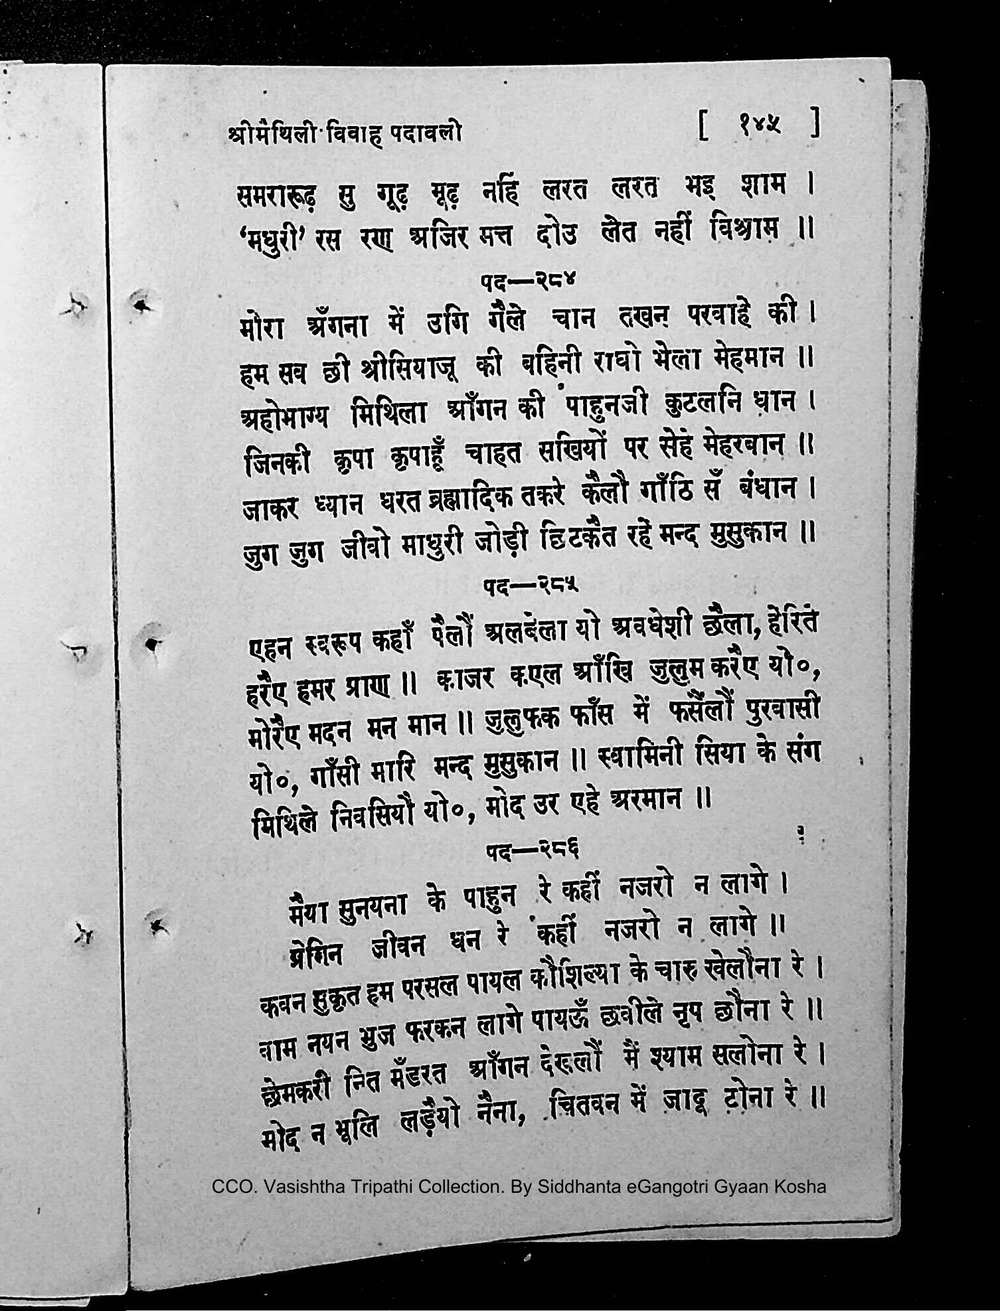 श्रीमैथिली विवाह पदावली [ १४५ ]
समरारूढ़ सु गूढ़ मूढ़ नहिं लरत लरत भइ शाम ।
‘मधुरी’ रस रण अजिर मत्त दोउ लेत नहीं विश्राम ॥
पद—२८४
मोरा अँगना में उगि गैले चान तखन परवाहे की ।
हम सव छी श्रीसियाजू की बहिनी राघो भेला मेहमान ॥
अहोभाग्य मिथिला आँगन की पाहुनजी कुटलनि धान ।
जिनकी कृपा कृपाहूँ चाहत सखियों पर सेहं मेहरबान ॥
जाकर ध्यान धरत ब्रह्मादिक तकरे कैलौ गाँठि सँ बंधान ।
जुग जुग जीवो माधुरी जोड़ी छिटकैत रहें मन्द मुसुकान ॥
पद—२८५
एहन स्वरूप कहाँ पैलौं अलबेला यो अवधेशी छैला, हेरितं
हरैए हमर प्राण ॥ काजर कएल आँखि जुलुम करैए यो०,
मोरैए मदन मन मान ॥ जुलुफक फाँस में फसैंलौं पुरवासी
यो०, गाँसी मारि मन्द मुसुकान ॥ स्वामिनी सिया के संग
मिथिले निवसियौ यो०, मोद उर एहे अरमान ॥
पद—२८६
मैया सुनयना के पाहुन रे कहीं नजरो न लागे ।
प्रेमिन जीवन धन रे कहीं नजरो न लागे ॥
कवन सुकृत हम परसल पायल कौशिल्या के चारु खेलौना रे ।
वाम नयन भुज फरकन लागे पायऊँ छवीले नृप छौना रे ॥
छेमकरी नित मँडरत आँगन देखलौं मैं श्याम सलोना रे ।
मोद न भूलि लड़ैयो नैना, चितवन में जादू टोना रे ॥
CCO. Vasishtha Tripathi Collection. By Siddhanta eGangotri Gyaan Kosha